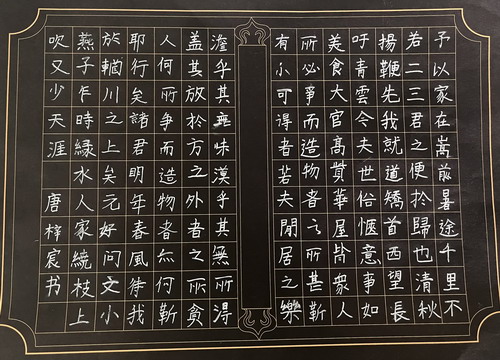 予以家在嵩前暑途千里不
若二三君之便於歸也清秋
揚鞭先我就道矯首西望長
吁青雲令夫世俗惬意事如
美食大官高貲華屋皆衆人
所必爭而造物者之所甚靳
有小可得者若夫閒居之樂
澹乎其無味漠乎其無所得
盖其放於方之外者之所貪
人何所争而造物者亦何靳
耶行矣諸君明年春風待我
於輞川之上矣元好问文小
燕子乍時緑水人家繞枝上
吹又少天涯 唐梓宸书